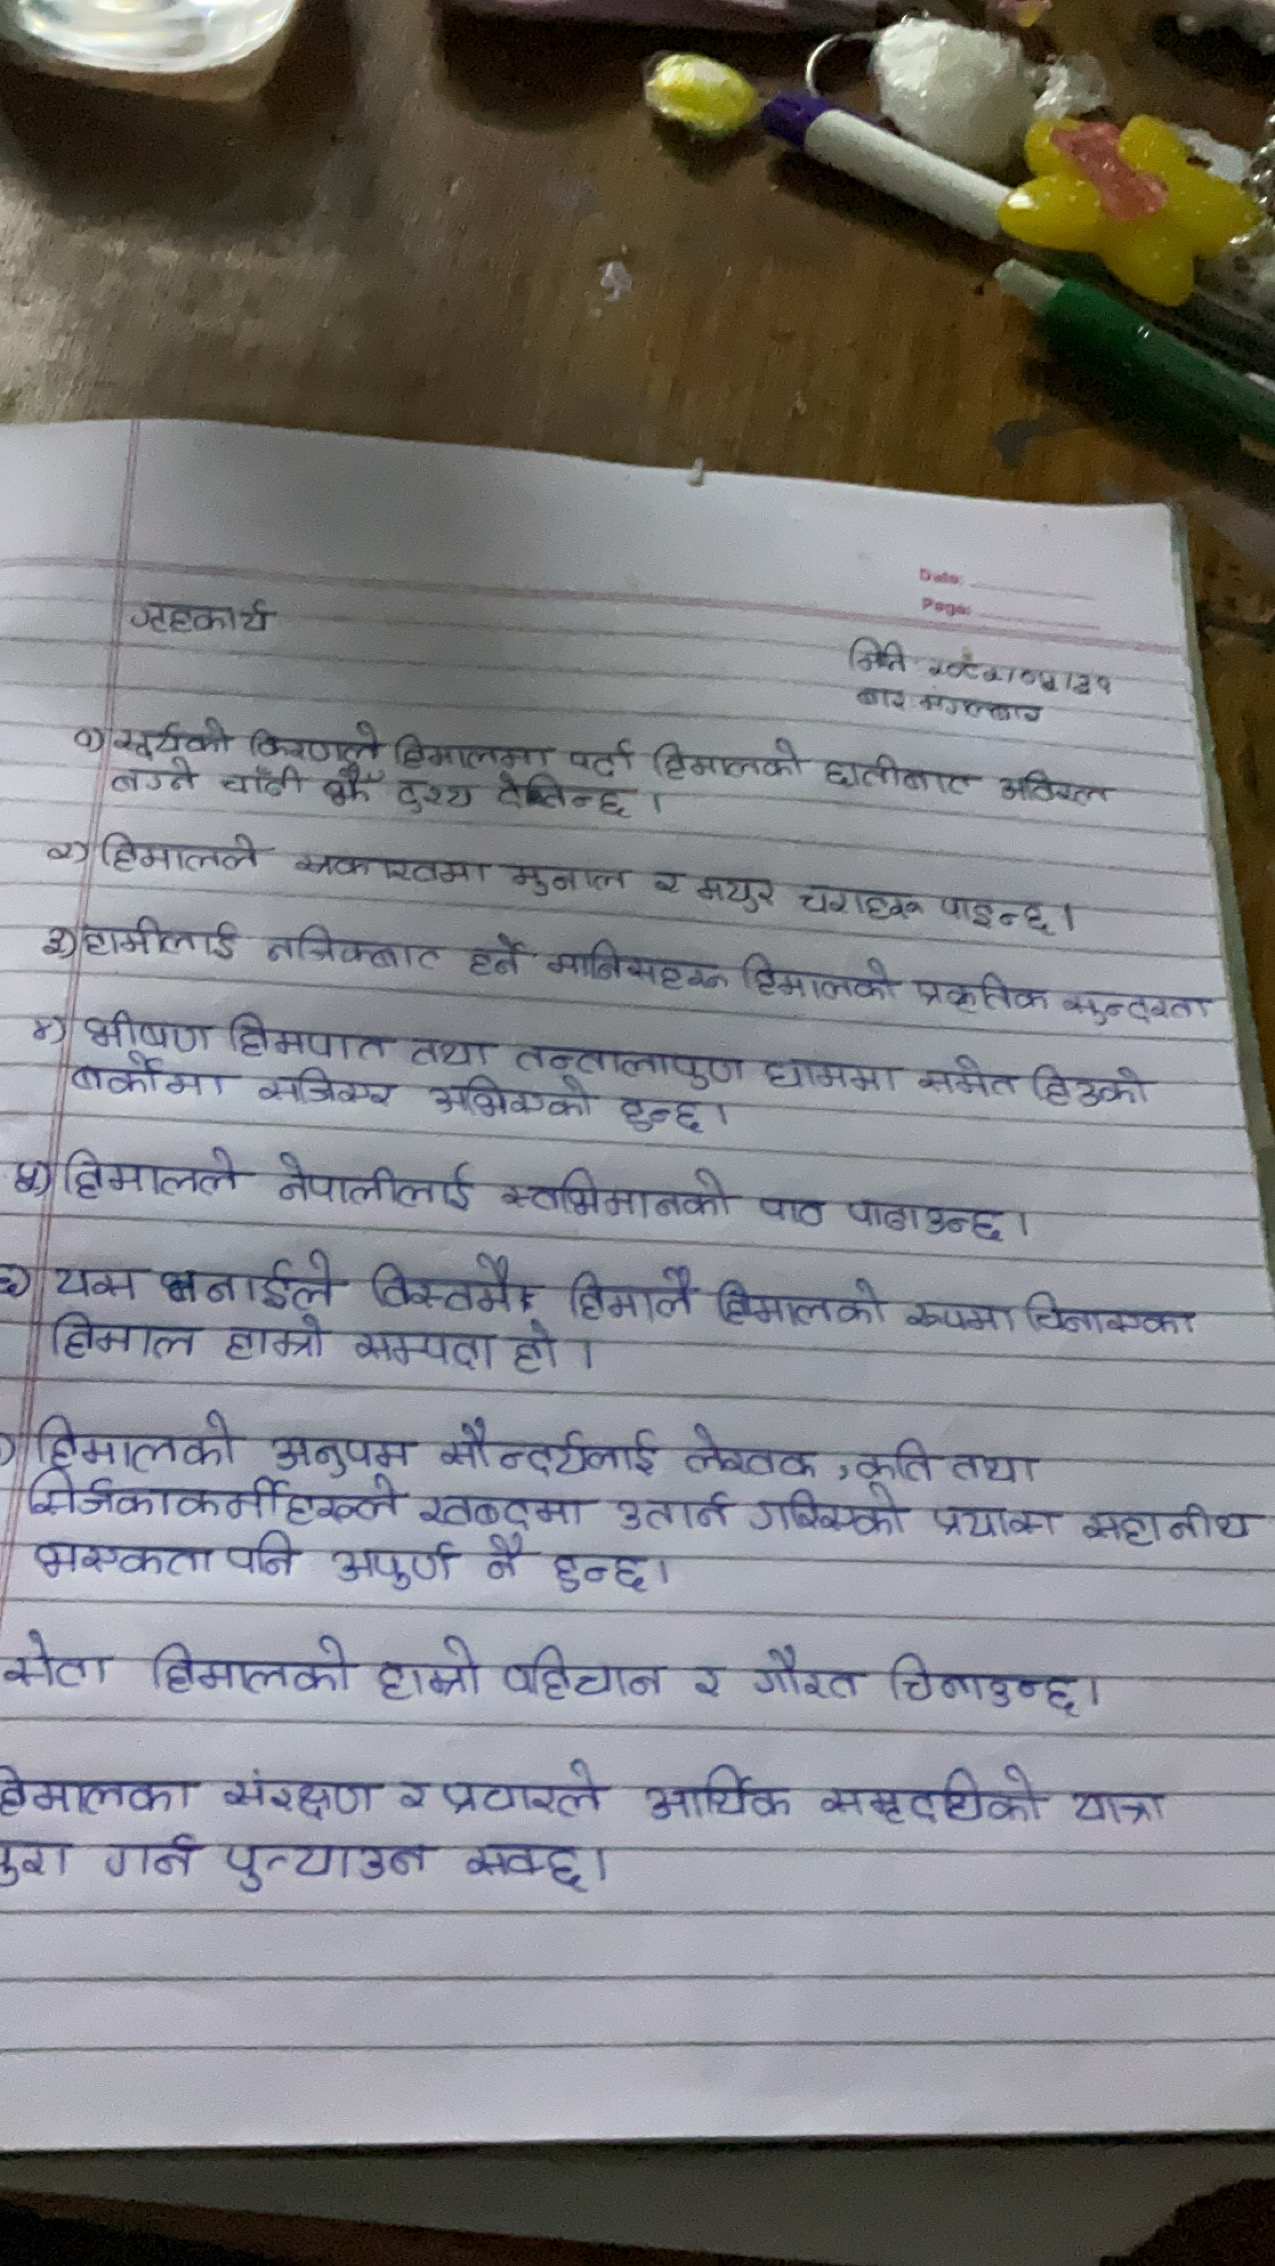 गृहकार्य
Date:
Page:
मिति २०८२/०५/३१
बार मंगलबार
१) सूर्यको किरणले हिमालमा पर्दा हिमालको छातीबाट अविरल
बग्ने चाँदी झैँ दृश्य देखिन्छ ।
२) हिमालले मुनाल र मयुर चराहरू पाइन्छ ।
३) हामीलाई नजिकबाट हर्ने मानिसहरू हिमालको प्रकृतिक सुन्दरता
४) भीषण हिमपात तथा घाममा समेत हिउको
बर्कोमा सजिएर हुन्छ ।
५) हिमालले नेपालीलाई स्वभिमानको पाठ पाढाउन्छ ।
६) यस भनाईले विस्वमै हिमालै हिमालको रूपमा चिनाएका
हिमाल हाम्रो सम्पदा हो ।
हिमालको अनुपम सौन्दर्यलाई लेखक, कवि तथा
सिर्जकाकर्मीहरूले उतार्न गरिएको प्रयास
पनि अपुर्ण नै हुन्छ ।
सेता हिमालको हाम्रो पहिचान र गौरव चिनाउन्छ ।
हिमालका संरक्षण र प्रचारले आर्थिक यात्रा
पुरा गर्न पुर्‍याउन सक्छ ।